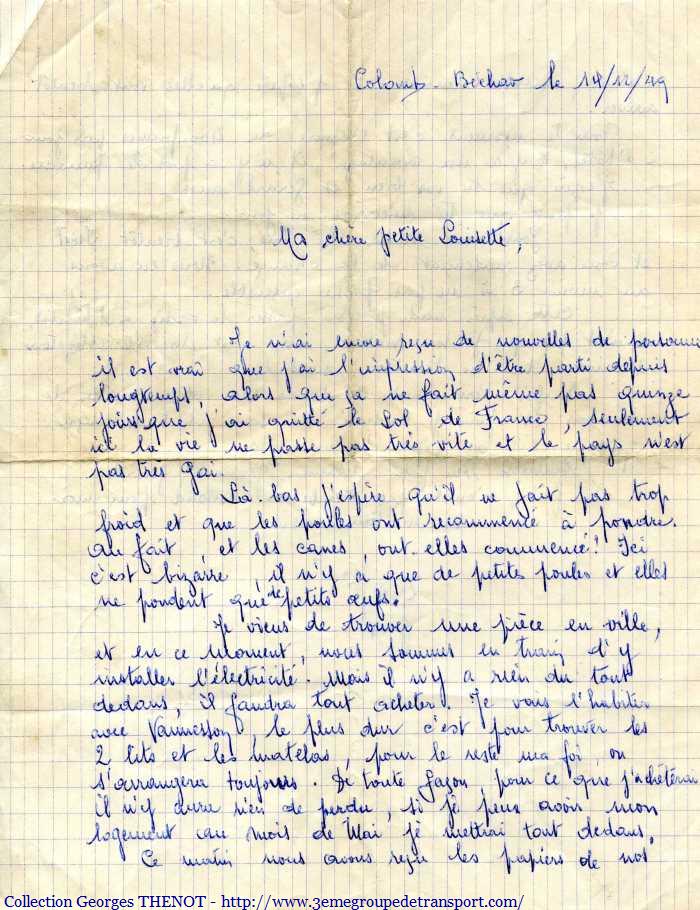 Colomb-Béchar le 14/12/49
Ma chère petite Louisette,
Je n'ai encore reçu de nouvelles de personne
il est vrai que j'ai l'impression d'être parti depuis
longtemps, alors que ça ne fait même pas quinze
jours que j'ai quitté le sol de France, seulement
ici la vie ne passe pas très vite et le pays n'est
pas très gai.
Là-bas j'espère qu'il ne fait pas trop
froid et que les poules ont recommencé à pondre.
Au fait, et les canes, ont-elles commencé! Ici
c'est bizarre, il n'y a que de petites poules et elles
ne pondent que de petits œufs.
Je viens de trouver une pièce en ville,
et en ce moment, nous sommes en train d'y
installer l'électricité. Mais il n'y a rien du tout
dedans, il faudra tout acheter. Je vais l'habiter
avec Vannesson, le plus dur c'est pour trouver les
2 lits et les matelas, pour le reste ma foi, on
s'arrangera toujours. De toute façon, pour ce que j'achèterai
il n'y aura rien de perdu, si je peux avoir mon
logement au mois de Mai je mettrai tout dedans.
Ce matin nous avons reçu les papiers de nos
Collection Georges THENOT - http://www.3emegroupedetransport.com/